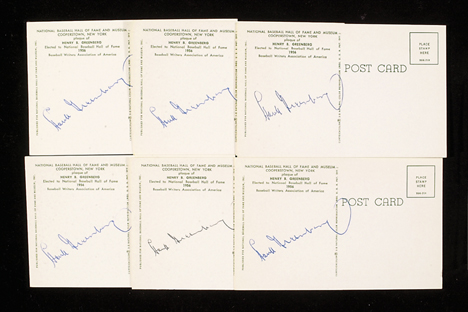 NATIONAL BASEBALL HALL OF FAME AND MUSEUM
COOPERSTOWN, NEW YORK
plaque of
HENRY B. GREENBERG
Elected to National Baseball Hall of Fame
1956
Baseball Writers Association of America
Hank Greenberg
NATIONAL BASEBALL HALL OF FAME AND MUSEUM
COOPERSTOWN, NEW YORK
plaque of
HENRY B. GREENBERG
Elected to National Baseball Hall of Fame
1956
Baseball Writers Association of America
Hank Greenberg
NATIONAL BASEBALL HALL OF FAME AND MUSEUM
COOPERSTOWN, NEW YORK
plaque of
HENRY B. GREENBERG
Elected to National Baseball Hall of Fame
1956
Baseball Writers Association of America
Hank Greenberg
POST CARD
PLACE
STAMP
HERE
NATIONAL BASEBALL HALL OF FAME AND MUSEUM
COOPERSTOWN, NEW YORK
plaque of
HENRY B. GREENBERG
Elected to National Baseball Hall of Fame
1956
Baseball Writers Association of America
Hank Greenberg
NATIONAL BASEBALL HALL OF FAME AND MUSEUM
COOPERSTOWN, NEW YORK
plaque of
HENRY B. GREENBERG
Elected to National Baseball Hall of Fame
1956
Baseball Writers Association of America
Hank Greenberg
NATIONAL BASEBALL HALL OF FAME AND MUSEUM
COOPERSTOWN, NEW YORK
plaque of
HENRY B. GREENBERG
Elected to National Baseball Hall of Fame
1956
Baseball Writers Association of America
Hank Greenberg
POST CARD
PLACE
STAMP
HERE